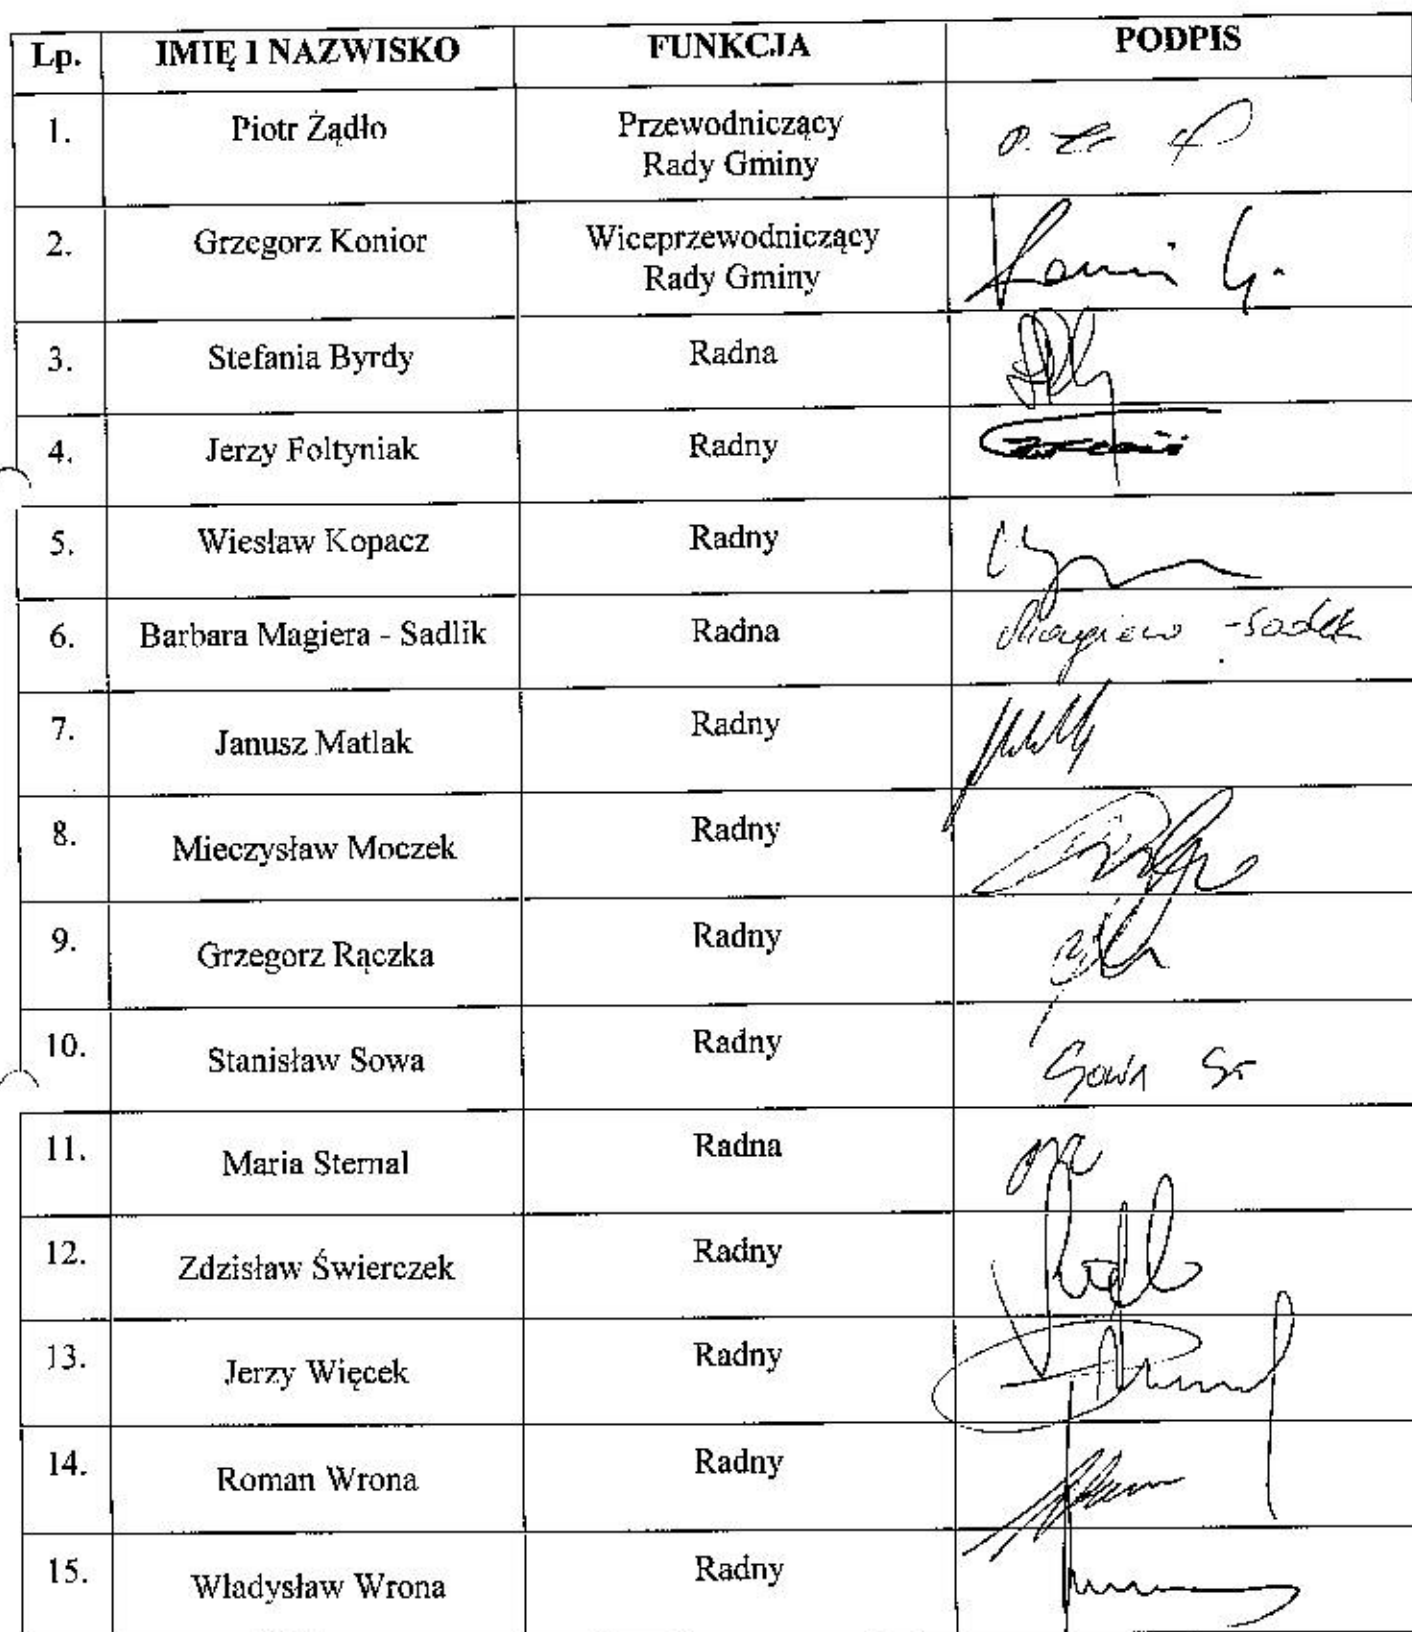 Lp. IMIĘ I NAZWISKO FUNKCJA PODPIS
1. Piotr Żądło Przewodniczący
Rady Gminy
2. Grzegorz Konior Wiceprzewodniczący
Rady Gminy
3. Stefania Byrdy Radna
4. Jerzy Foltyniak Radny
5. Wiesław Kopacz Radny
6. Barbara Magiera - Sadlik Radna Magiera - Sadlik
7. Janusz Matlak Radny
8. Mieczysław Moczek Radny
9. Grzegorz Rączka Radny
10. Stanisław Sowa Radny Sowa St
11. Maria Sternal Radna
12. Zdzisław Świerczek Radny
13. Jerzy Więcek Radny
14. Roman Wrona Radny
15. Władysław Wrona Radny